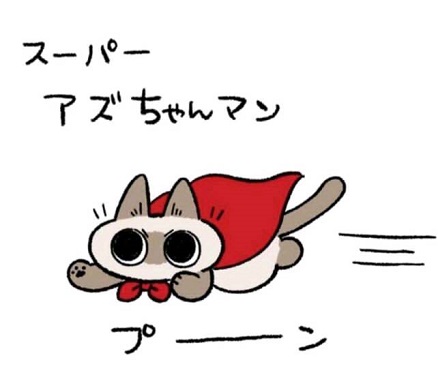 スーパー
アズちゃんマン
プーーン